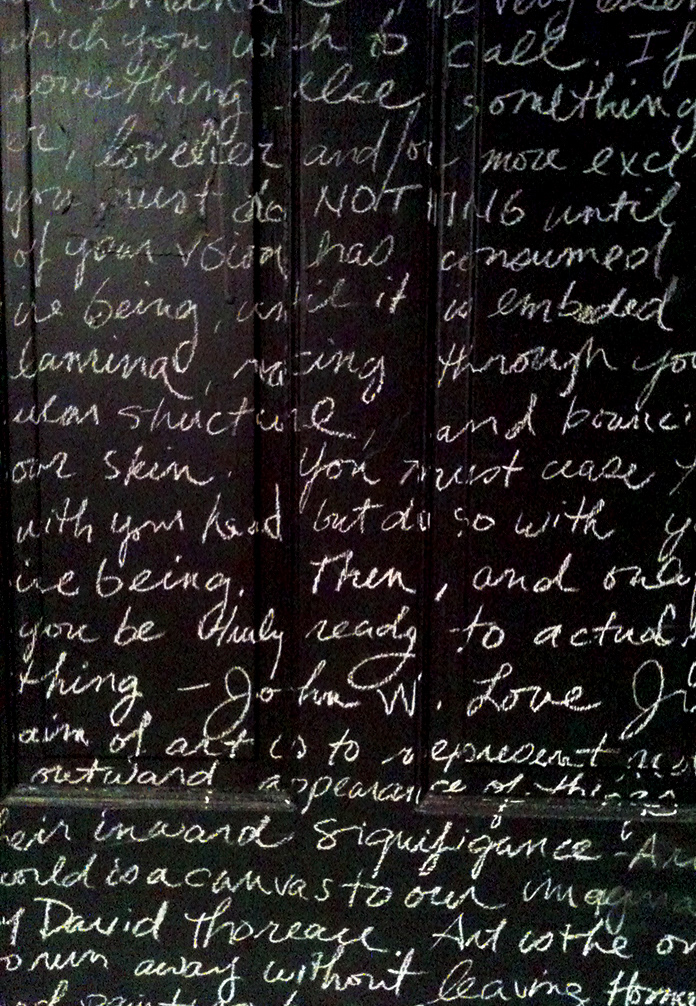 which you wish to call. If
something else, something
er, lovelier and/or more exci
you must do NOTHING until
of your vision has consumed
ire being, until it is embeded
lamina, racing through you
ular structure, and bounci
our skin. You must cease
with your head but do so with y
ire being. Then, and only
you be truly ready to actual
thing - John W. Love Jr.
aim of art is to represent not
outward appearance of things
heir inward signifigance - Ar
world is a canvas to our imagina
y David Thoreau. Art is the on
to run away without leaving Home